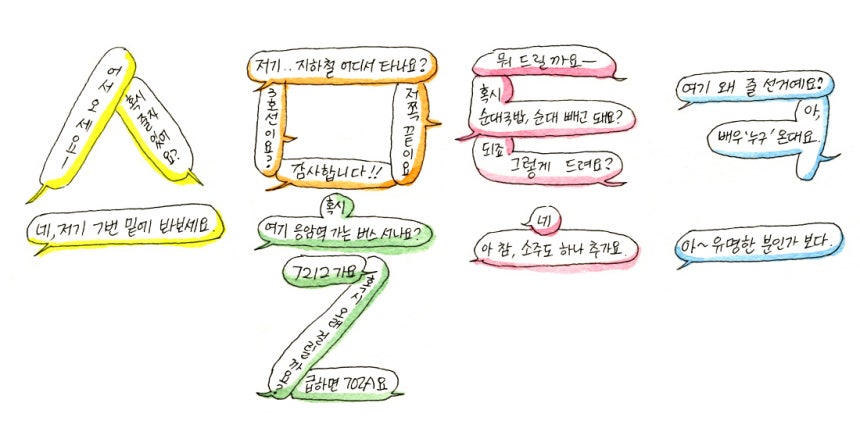 어서오세요ㅡ
혹시 줄자 있어요?
네, 저기 7번 밑에 봐보세요.
저기.. 지하철 어디서 타나요?
3호선이요?
저쪽 끝이요
감사합니다!!
혹시
여기 응암역 가는 버스 서나요?
7212 가요
혹시 오래 걸릴까요?
급하면 702A요
뭐 드릴까요ㅡ
혹시
순대국밥, 순대 빼고 돼요?
되죠
그렇게 드려요?
네
아 참, 소주도 하나 추가요.
여기 왜 줄 선거예요?
아,
배우 '누구' 온대요.
아~ 유명한 분인가 보다.